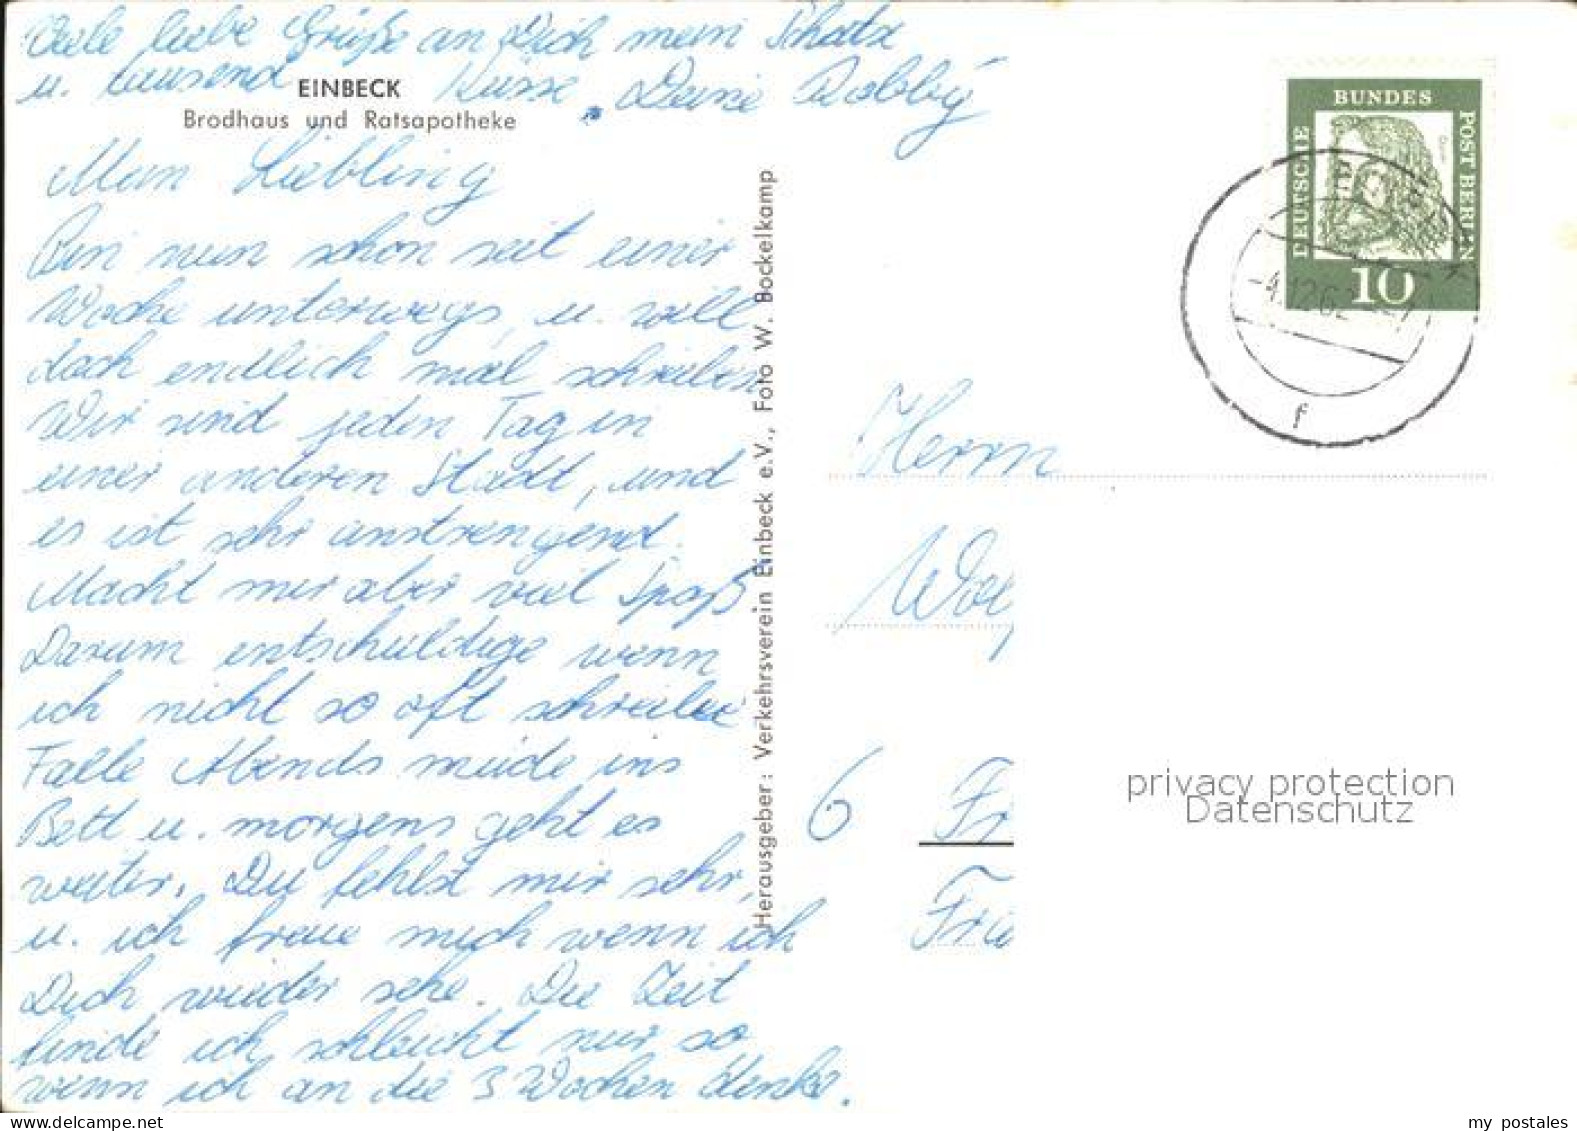 Viele liebe Grüße an Dich mein Schatz
u. tausend Küsse. Deine Robby
EINBECK
Brodhaus und Ratsapotheke
Mein Liebling
Bin nun schon seit einer
Woche unterwegs, u. will
doch endlich mal schreiben
Wir sind jeden Tag in
einer anderen Stadt, und
es ist sehr anstrengend.
Macht mir aber viel Spaß
Darum entschuldige wenn
ich nicht so oft schreibe
Falle Abends müde ins
Bett u. morgens geht es
weiter. Du fehlst mir sehr,
u. ich freue mich wenn ich
Dich wieder sehe. Die Zeit
finde ich schleicht nur so
wenn ich an die 3 Wochen denke.
Herausgeber: Verkehrsverein Einbeck e.V., Foto W. Bockelkamp
DEUTSCHE
BUNDES
POST BERLIN
10
-4.12.62
f
Herrn
6 Fr
privacy protection
Datenschutz
my postales